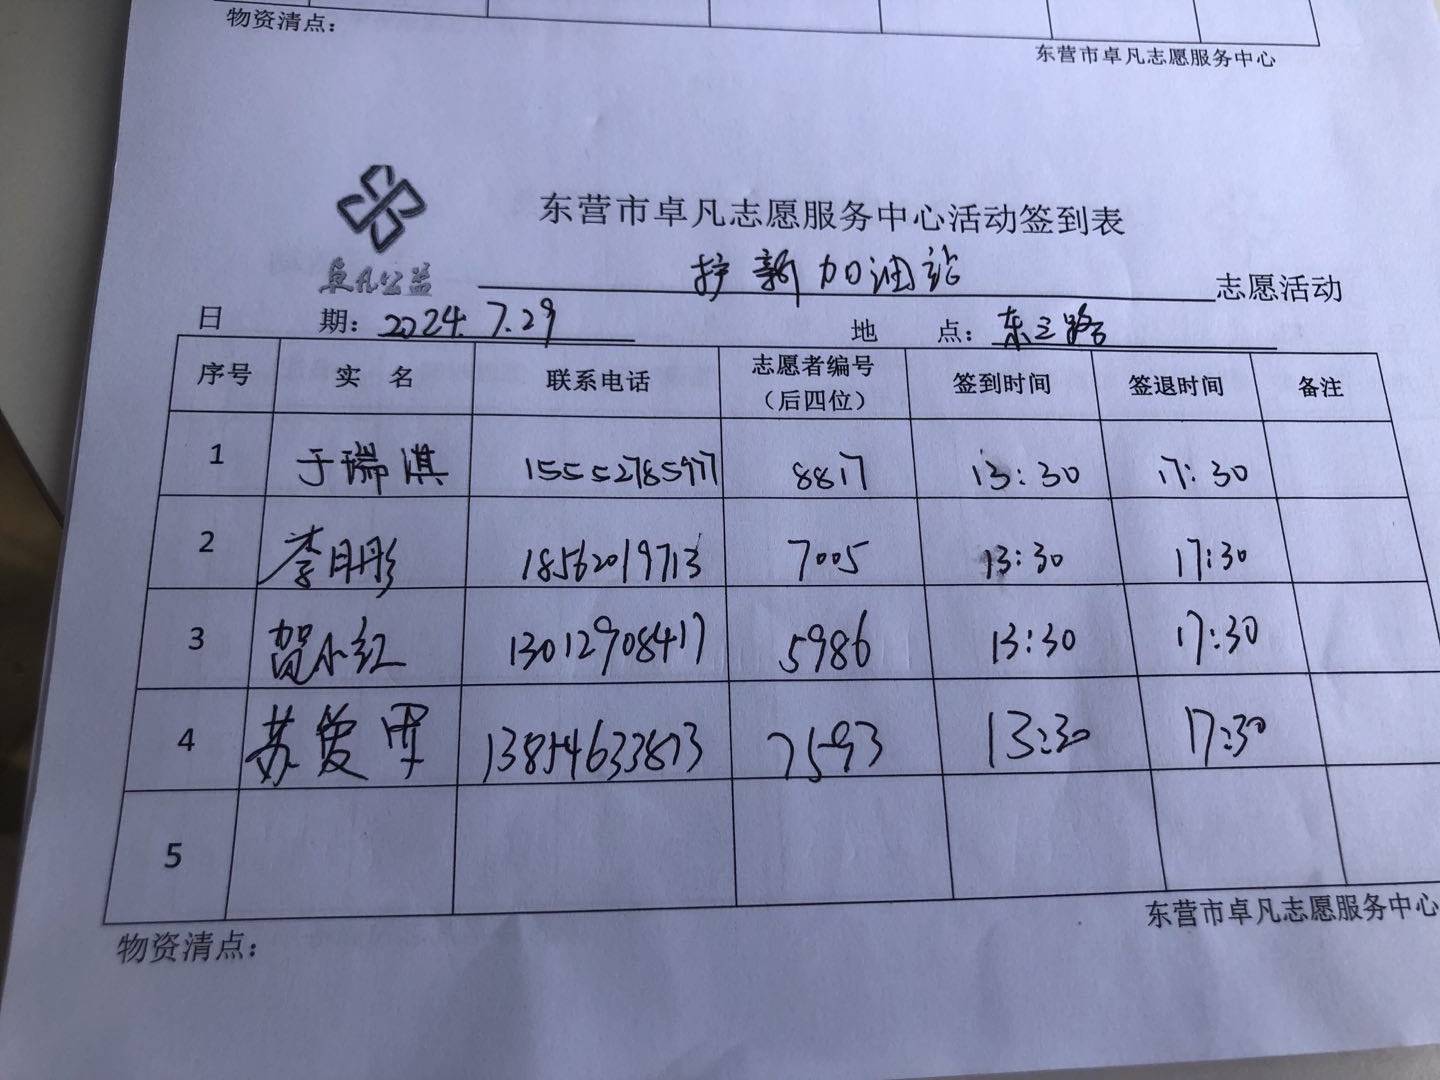 物资清点：
东营市卓凡志愿服务中心
东营市卓凡志愿服务中心活动签到表
卓凡公益
护新加油站 志愿活动
日 期：2024.7.29 地 点：东三路
序号 实 名 联系电话 志愿者编号（后四位） 签到时间 签退时间 备注
1 于瑞淇 15552785977 8817 13:30 17:30
2 李月彤 18562019713 7005 13:30 17:30
3 贺小红 13012908417 5986 13:30 17:30
4 苏爱军 13854633873 7593 13:30 17:30
5
东营市卓凡志愿服务中心
物资清点：